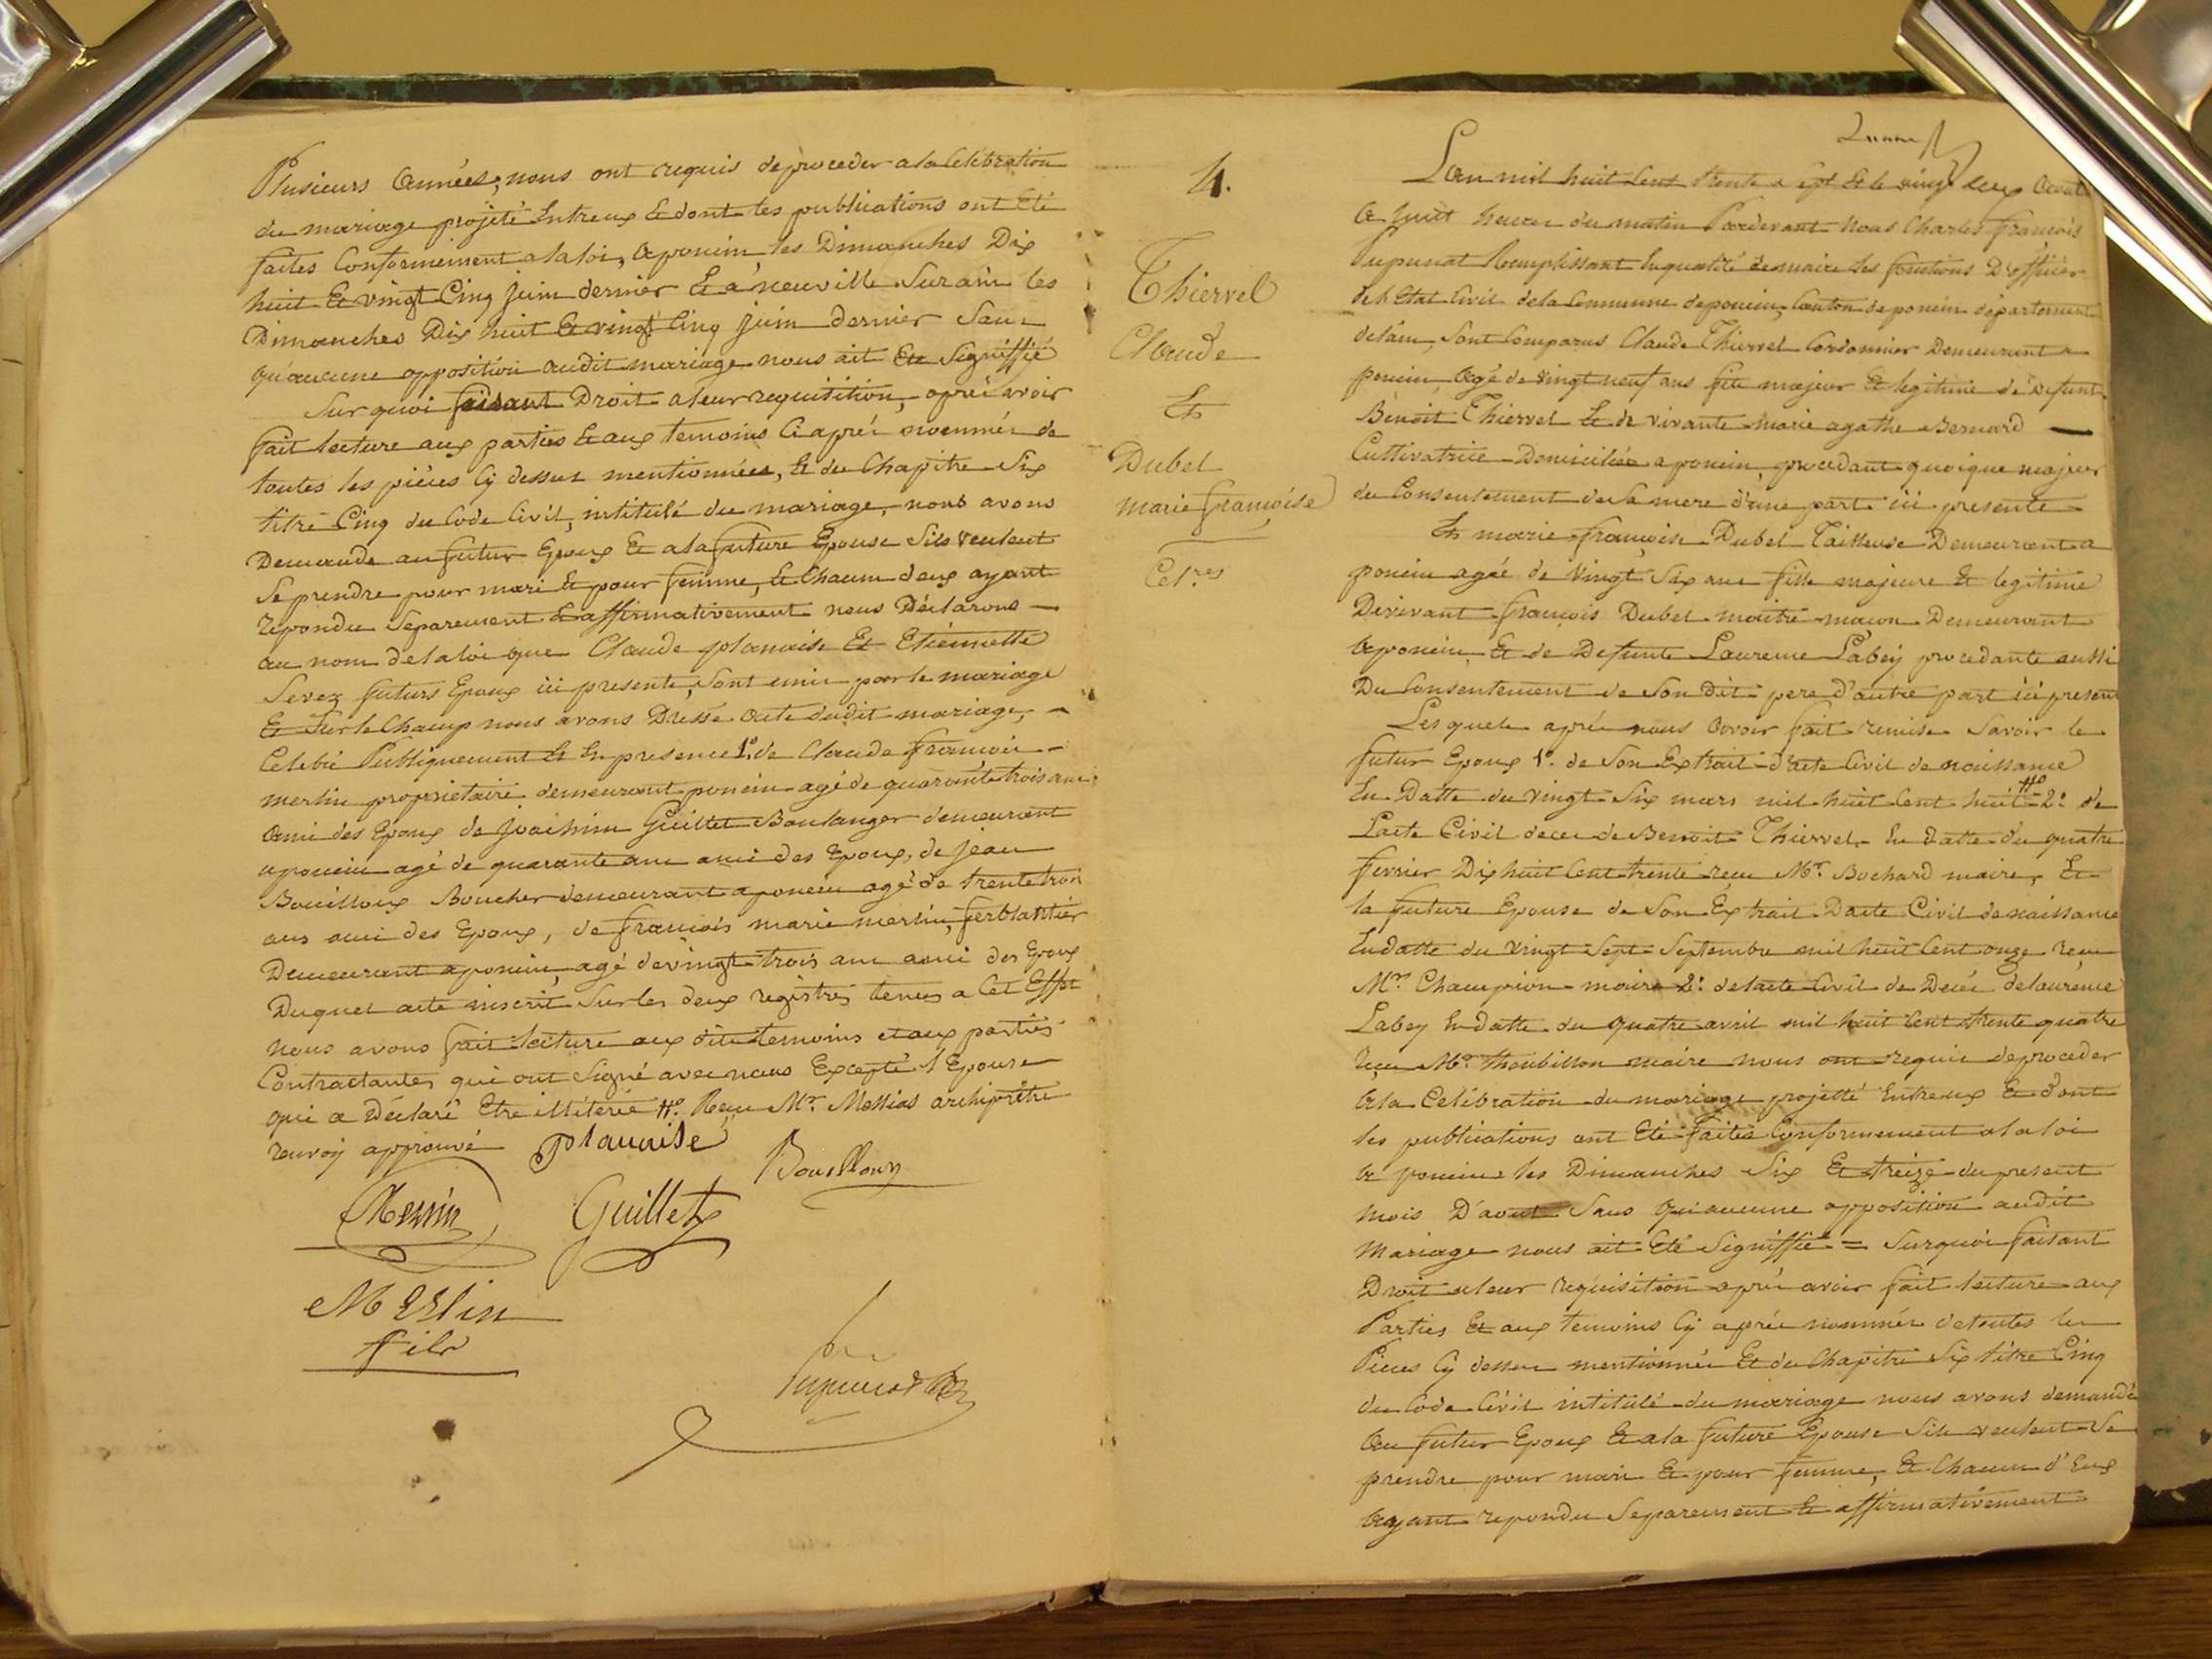 Plusieurs Années, nous ont requis de proceder a la Celebration
du mariage projeté Entreux Et dont les publications ont Eté
faites Conformement a la loi, a poncin, les Dimanches Dix
huit Et vingt Cinq juin dernier Et a neuville Sur ain les
Dimanches Dix huit Et vingt Cinq juin dernier Sans
qu'aucune opposition audit mariage nous ait Eté Signiffié
Sur quoi faisant Droit a leur requisition, après avoir
fait lecture aux parties Et aux temoins Ci après nommés de
toutes les pièces Cy dessus mentionnées, Et du Chapitre Six
titre Cinq du Code Civil, intitulé du mariage, nous avons
Demande au futur Epoux Et a la future Epouse Sils veulent
Se prendre pour mari Et pour femme, Et Chacun deux ayant
repondu Separement Et affirmativement nous Déclarons —
au nom de la loi que Claude planaise Et Etiennette
Sevez futurs Epoux ici presents, Sont unis par le mariage
Et Sur le Champ nous avons Dressé acte dudit mariage, -
Celebré Publiquement Et En presence 1º. de Claude françois -
merlin proprietaire demeurant poncin agé de quarante trois ans
ami des Epoux de Joachim Guillet Boulanger demeurant
a poncin agé de quarante ans ami des Epoux, de jean
Bouilloux Boucher demeurant a poncin agé de trente trois
ans ami des Epoux, de françois marie merlin, ferblantier
Demeurant a poncin, agé de vingt trois ans ami des Epoux
Duquel acte inscrit Sur les deux registres tenus a Cet Effet
nous avons fait lecture aux dits temoins et aux parties
Contractantes qui ont Signé avec nous Excepté l'Epouse
qui a Déclaré Etre illiterée #º. Mr. Messias archiprêtre
renvoy approuvé planaise
Bouilloux
Merlin Guillet
Merlin
fils
4.
Thiervel
Claude
Et
Dubel
marie françoise
Cel.res
L'an mil huit Cent trente Sept Et le vingt deux Aout
a huit heures du matin Pardevant Nous Charles françois
Remplissant En qualité de maire les fonctions D'officier
de l'Etat Civil de la Commune de poncin, Canton de poncin departement
de l'ain, Sont Comparus Claude Thiervel Cordonnier Demeurant a
poncin agé de vingt neuf ans fils majeur Et legitime de Defunt
Benoit Thiervel Et de vivante marie agathe Bernard —
Cultivatrice Domiciliée a poncin, procedant quoique majeur
du Consentement de Sa mere d'une part ici presente
Et marie françoise Dubel Tailleuse Demeurant a
poncin agée de vingt Six ans fille majeure Et legitime
De vivant françois Dubel maitre macon Demeurant
a poncin Et de Defunte Laurence Labey procedante aussi
Du Consentement de Son dit pere d'autre part ici present
Lesquels après nous avoir fait remise Savoir le
futur Epoux 1º. de Son Extrait d'acte Civil de naissance
En Datte du vingt Six mars mil huit Cent huit #º 2º. de
L'acte Civil deces de Benoit Thiervel En datte du quatre
fevrier Dix huit Cent trente recu Mr. Bochard maire, Et
la future Epouse de Son Extrait D'acte Civil de naissance
En datte du vingt Sept Septembre mil huit Cent onze recu
Mr. Champion maire 2º. de l'acte Civil de Decès de laurence
Labey En datte du quatre avril mil huit Cent trente quatre
recu Mr. Thoubillon maire nous ont requis de proceder
a la Celébration du mariage projetté Entreux Et dont
les publications ont Eté faites Conformement a la loi
a poncin les Dimanches Six Et treize du present
mois D'aout Sans qu'aucune opposition audit
mariage nous ait Eté Signiffié = Sur quoi faisant
Droit a leur requisition après avoir fait lecture aux
Parties Et aux temoins Cy après nommés de toutes les
Pieces Cy dessus mentionnées Et du Chapitre Six titre Cinq
du Code Civil intitulé du mariage nous avons demandé
au futur Epoux Et a la future Epouse Sils veulent Se
prendre pour mari Et pour femme, Et Chacun d'Eux
ayant repondu Separement Et affirmativement